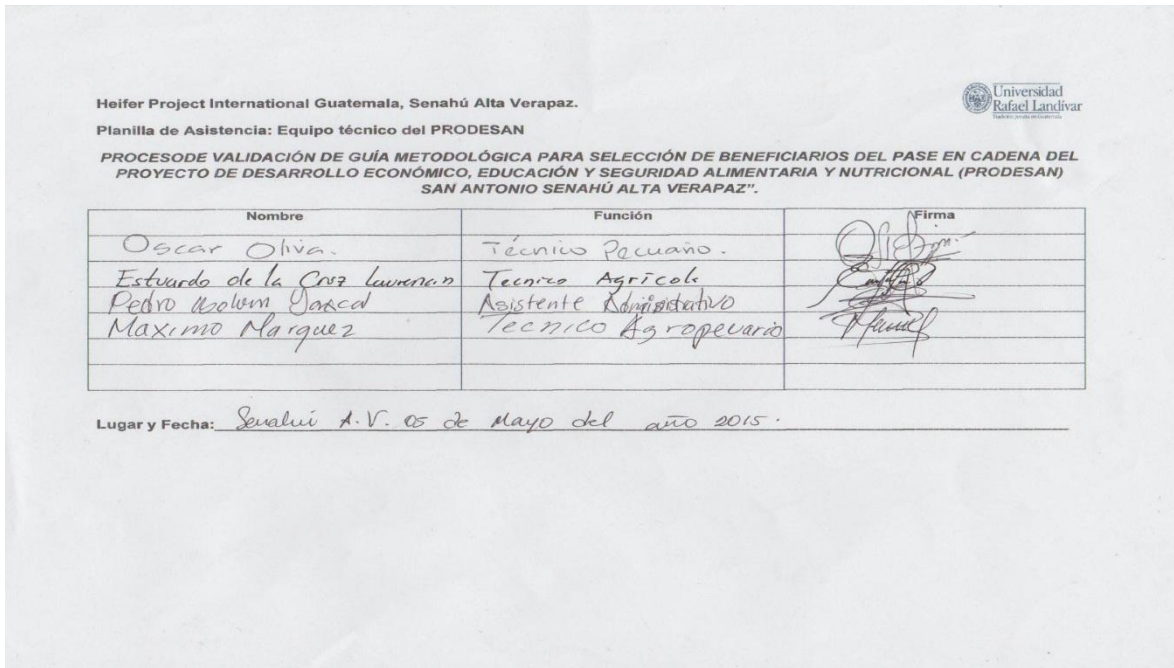 Universidad
Rafael Landívar
Tradición Jesuita en Guatemala
Heifer Project International Guatemala, Senahú Alta Verapaz.
Planilla de Asistencia: Equipo técnico del PRODESAN
PROCESODE VALIDACIÓN DE GUÍA METODOLÓGICA PARA SELECCIÓN DE BENEFICIARIOS DEL PASE EN CADENA DEL
PROYECTO DE DESARROLLO ECONÓMICO, EDUCACIÓN Y SEGURIDAD ALIMENTARIA Y NUTRICIONAL (PRODESAN)
SAN ANTONIO SENAHÚ ALTA VERAPAZ”.
Nombre Función Firma
Oscar Oliva. Técnico Pecuario.
Estuardo de la Cruz Tecnico Agrícola
Pedro Asistente Administrativo
Maximo Marquez Tecnico Agropecuario
Lugar y Fecha: Senahú A.V. 05 de Mayo del año 2015.